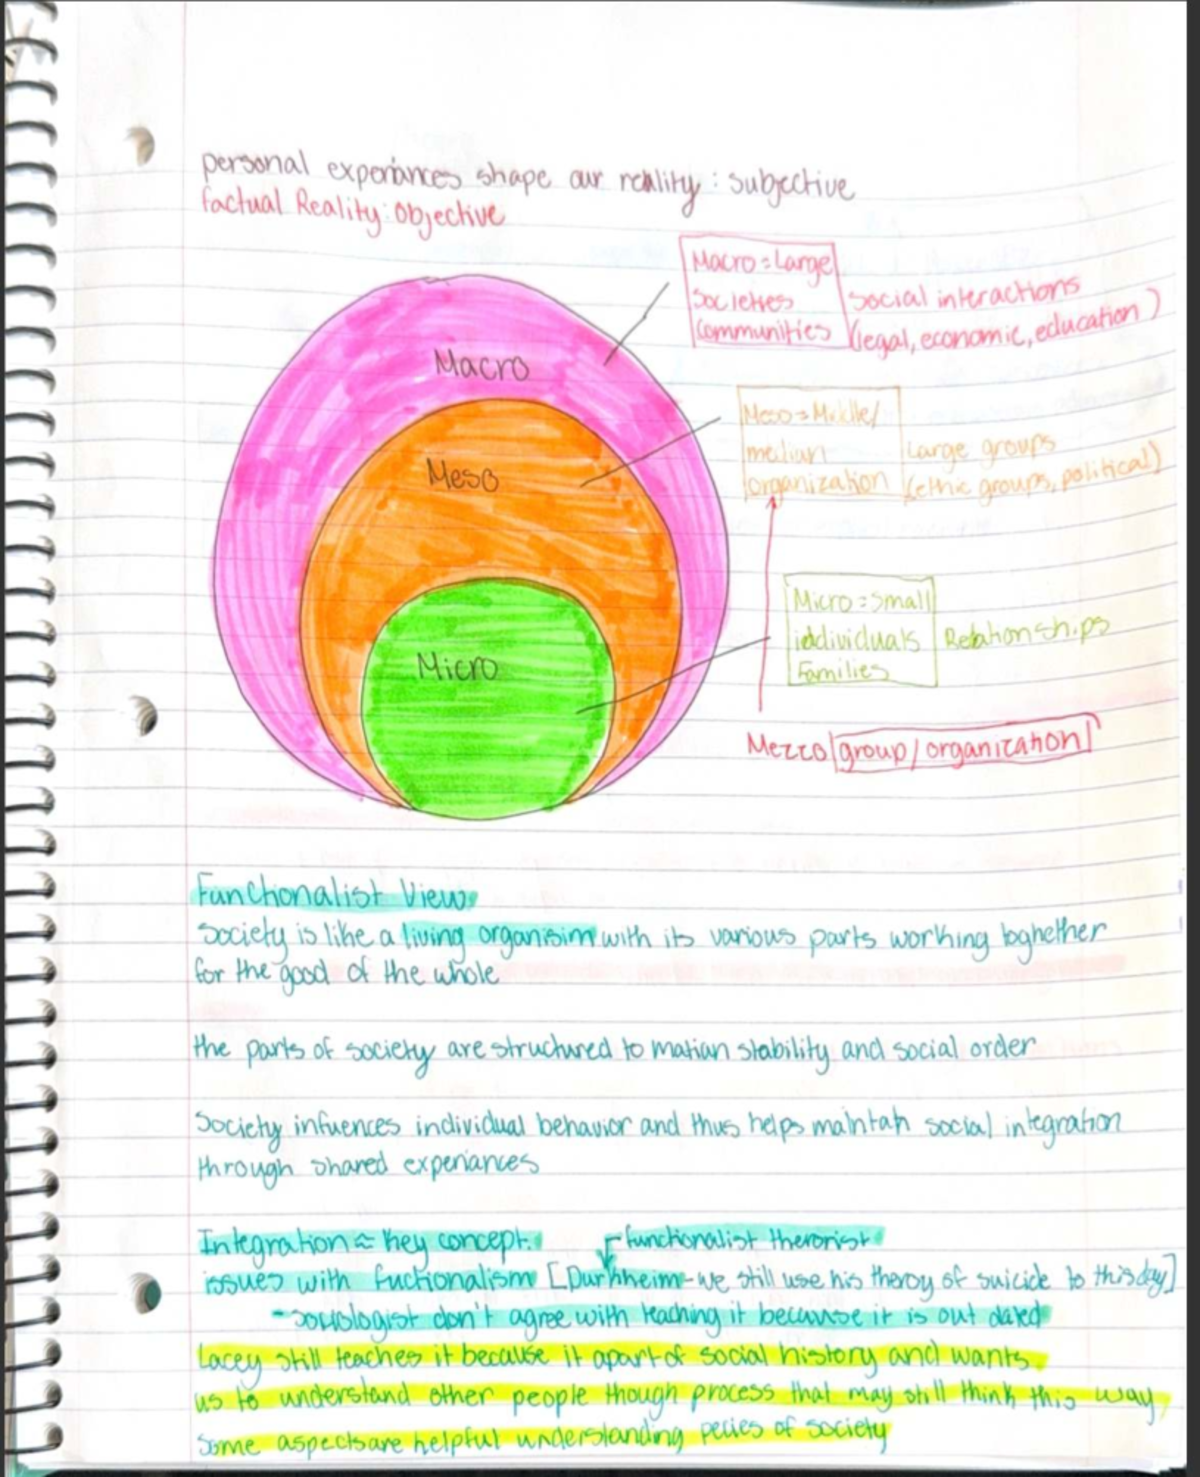 personal experiances shape our reality : subjective
factual Reality : Objective
Macro = Large
Societies
Communities
Social interactions
(legal, economic, education)
Macro
Meso = Middle/
median
organization
Large groups
(ethic groups, political)
Meso
Micro = Small
iddividuals
Families
Relationships
Micro
Mezzo group/organization
Functionalist View:
Society is like a living organisim with its various parts working toghether
for the good of the whole
the parts of society are structured to matian stability and social order
Society infuences individual behavior and thus helps maintain social integration
through shared experiances
Integration ≈ Key concept.
functionalist therorist
issues with fuctionalism [Durhheim - we still use his theroy of suicide to this day]
- sociologist don't agree with teaching it because it is out dated
Lacey still teaches it because it apart of social history and wants
us to understand other people though process that may still think this way,
some aspects are helpful understanding pecies of society